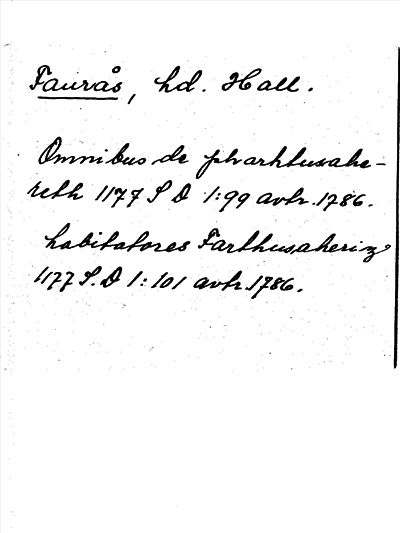 Faurås, hd. Hall.
Omnibus de pharhtusahe-
reth 1177 S D 1:99 avtr. 1786.
habitatores Farthusaheriz
1177 S.D 1:101 avtr. 1786.